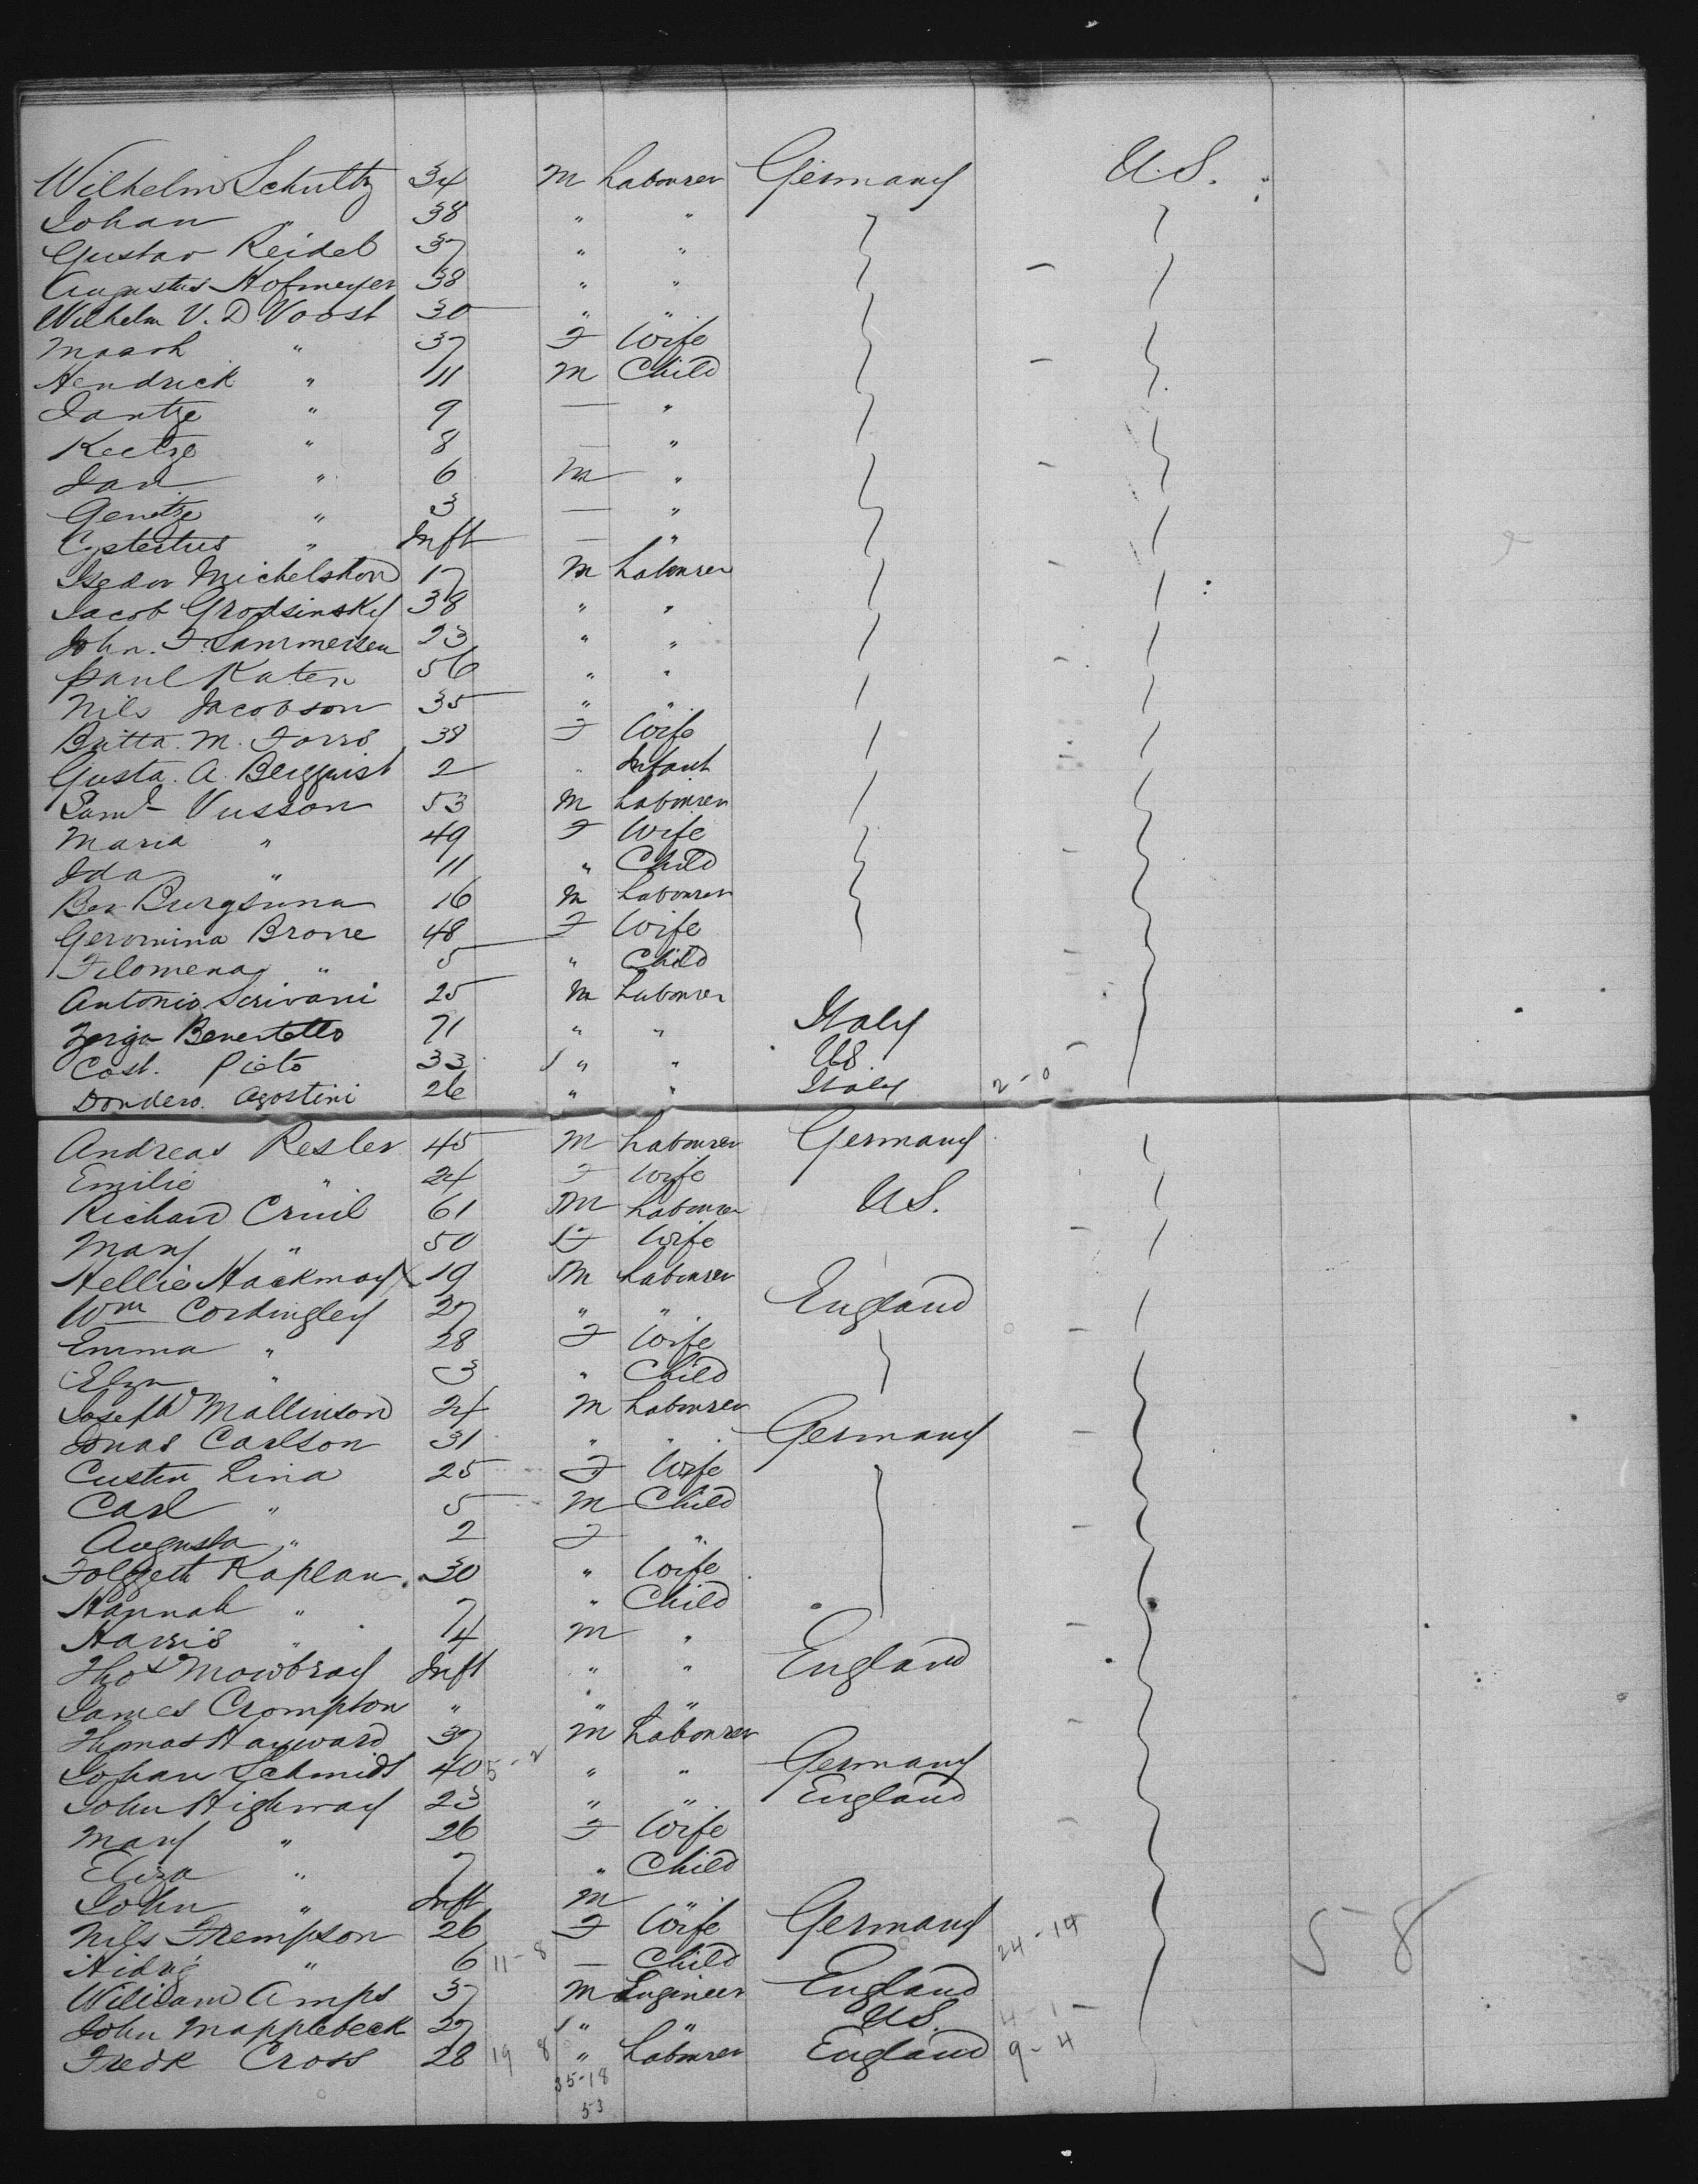 Wilhelm Schultz 34 M Labourer Germany U.S.
Johan " 38 " "
Gustav Reidel 37 " "
Augustus Hofmeyer 38 " "
Wilhelm V. D. Voost 30 " "
" 37 F Wife
Hendrick " 11 M Child
Jantze " 9 — "
Keetze " 8 — "
Jan " 6 M "
Genetze " 3 — "
" Inft — "
Isedor Michelshon 17 M Labourer
Jacob Grodsinsky 38 " "
John. F. Lammersen 23 " "
Paul Katen 56 " "
Nils Jacobson 35 " "
Britta. M. Forss 38 F Wife
Gusta. A. Bergquist 2 " Infant
Saml Vusson 53 M Labourer
Maria " 49 F Wife
Ida " 11 " Child
Ber Burgsuna 16 M Labourer
Geromina Brone 48 F Wife
Filomena " 5 " Child
Antonio Scrivani 25 M Labourer
Benedetto 71 " " Italy
Cost. Pieto 33 1 " " US
Dondero. Agostini 26 " " Italy 2-0
Andreas Resler 45 M Labourer Germany
Emilie " 24 F Wife
Richard Cruil 61 M Labourer U.S.
Mary " 50 F Wife
Hellie Hackmay 19 M Labourer
Wm Cordingley 27 " " England
Emma " 28 F Wife
" 3 " Child
Joseph Mallinson 24 M Labourer
Jonas Carlson 31 " " Germany
Custin Lina 25 F Wife
Carl " 5 M Child
Augusta " 2 F "
Kaplan 30 " Wife
Hannah " 7 " Child
Harris " 4 M "
Thos Mowbray Inft " " England
James Crompton " " "
Thomas Hayward 37 M Labourer
Johan Schmidt 40 5-2 " " Germany
John Highway 23 " " England
Mary " 26 F Wife
Eliza " 7 " Child
John " Inft M
Nils Trempson 26 F Wife Germany 24-14 58
" 6 11-8 — Child
William Amps 37 M Engineer England
John Mapplebeck 27 1 " " U.S. 4-1
Fredk Cross 28 19 8 " Labourer England 9-4
35-18
53